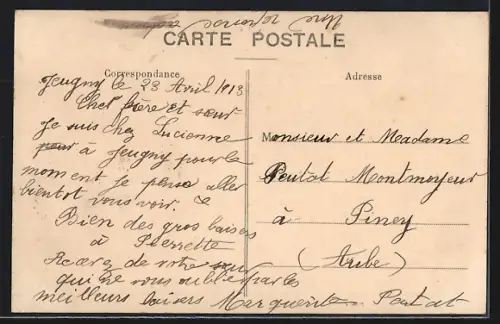 CARTE POSTALE
Correspondance
Adresse
Jeugny le 23 Avril 1913
Cher frère et sœur
Je suis chez Lucienne
à Jeugny pour le
moment je pense aller
bientot vous voir.
Bien des gros baisers
à Pierrette
Recevez de votre sœur
qui ne vous oublie pas les
meilleurs baisers Marguerite Poutot
Monsieur et Meadame
Poutot Montmoyeur
à Piney
(Aube)